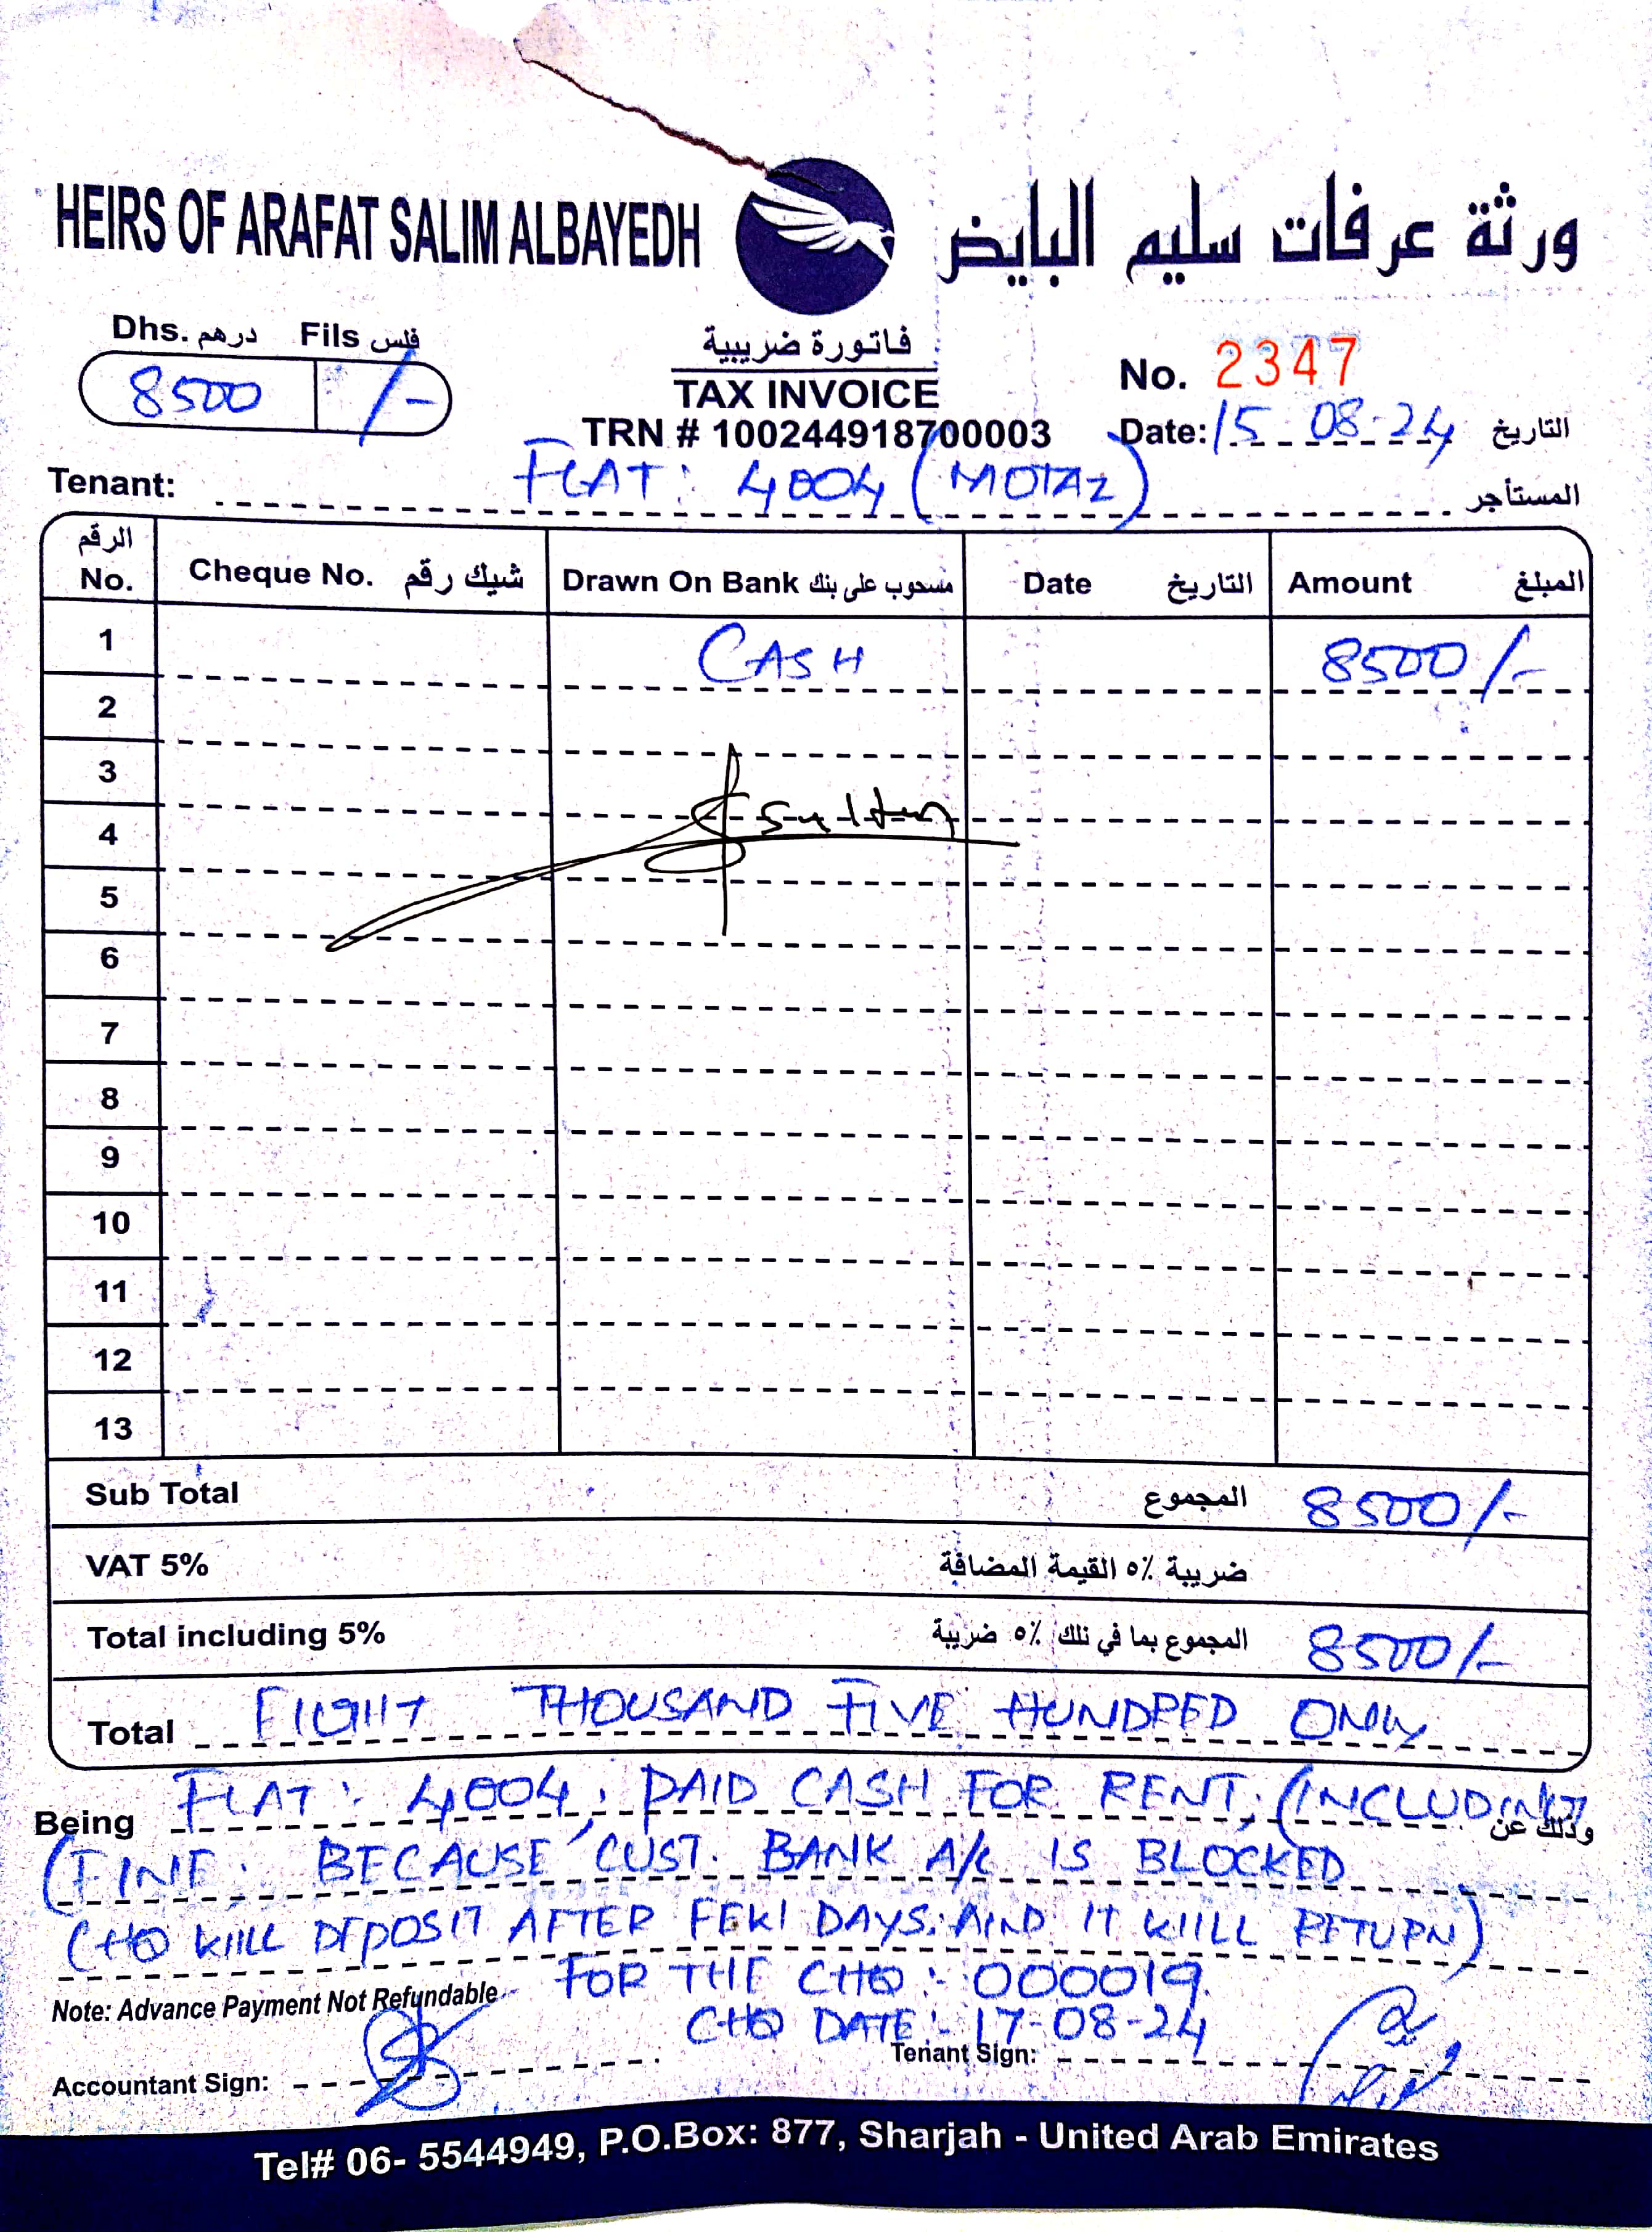 HEIRS OF ARAFAT SALIM ALBAYEDH ورثة عرفات سليم البايض
Dhs. درهم Fils فلس
8500 /-
فاتورة ضريبية
TAX INVOICE
TRN # 100244918700003
No. 2347
Date: 15-08-24 التاريخ
Tenant: FLAT: 4004 (MOTAZ) المستأجر
الرقم No. Cheque No. شيك رقم Drawn On Bank مسحوب على بنك Date التاريخ Amount المبلغ
1 CASH 8500/-
2
3
4 Sultan
5
6
7
8
9
10
11
12
13
Sub Total المجموع 8500/-
VAT 5% ضريبة ٥٪ القيمة المضافة
Total including 5% المجموع بما في ذلك ٥٪ ضريبة 8500/-
Total EIGHT THOUSAND FIVE HUNDRED ONLY
Being FLAT: 4004, PAID CASH FOR RENT, (INCLUDING وذلك عن
(FINE, BECAUSE CUST. BANK A/C IS BLOCKED
(CHQ WILL DEPOSIT AFTER FEW DAYS. AND IT WILL RETURN)
FOR THE CHQ: 000019.
Note: Advance Payment Not Refundable
CHQ DATE:- 17-08-24
Accountant Sign: Tenant Sign:
Tel# 06- 5544949, P.O.Box: 877, Sharjah - United Arab Emirates